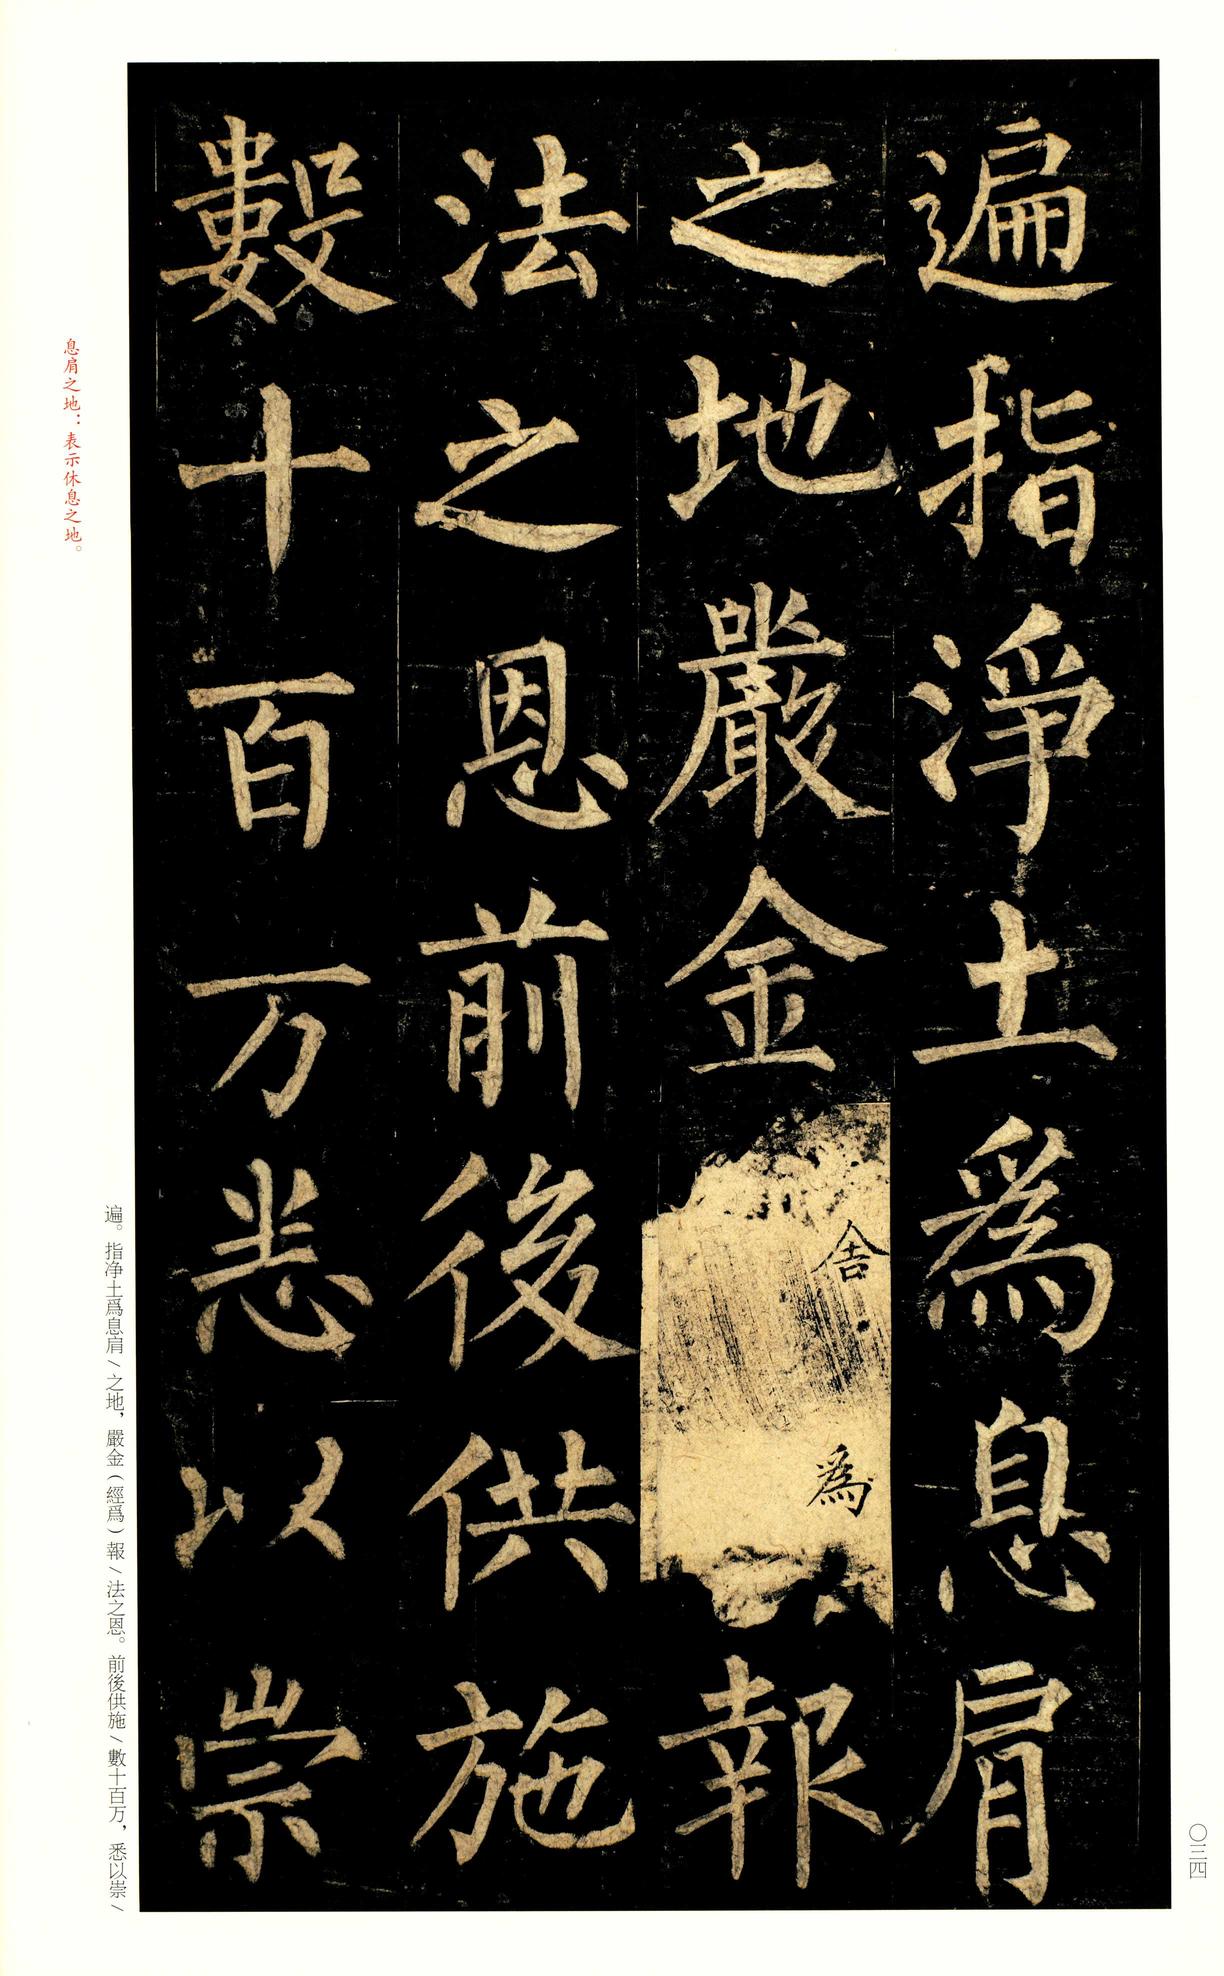 遍指淨土爲息肩
之地嚴金舍為報
法之恩前後供施
數十百万悉以崇
息肩之地：表示休息之地。
遍。指净土爲息肩／之地，嚴金（經爲）報／法之恩。前後供施／數十百万，悉以崇／
〇三四